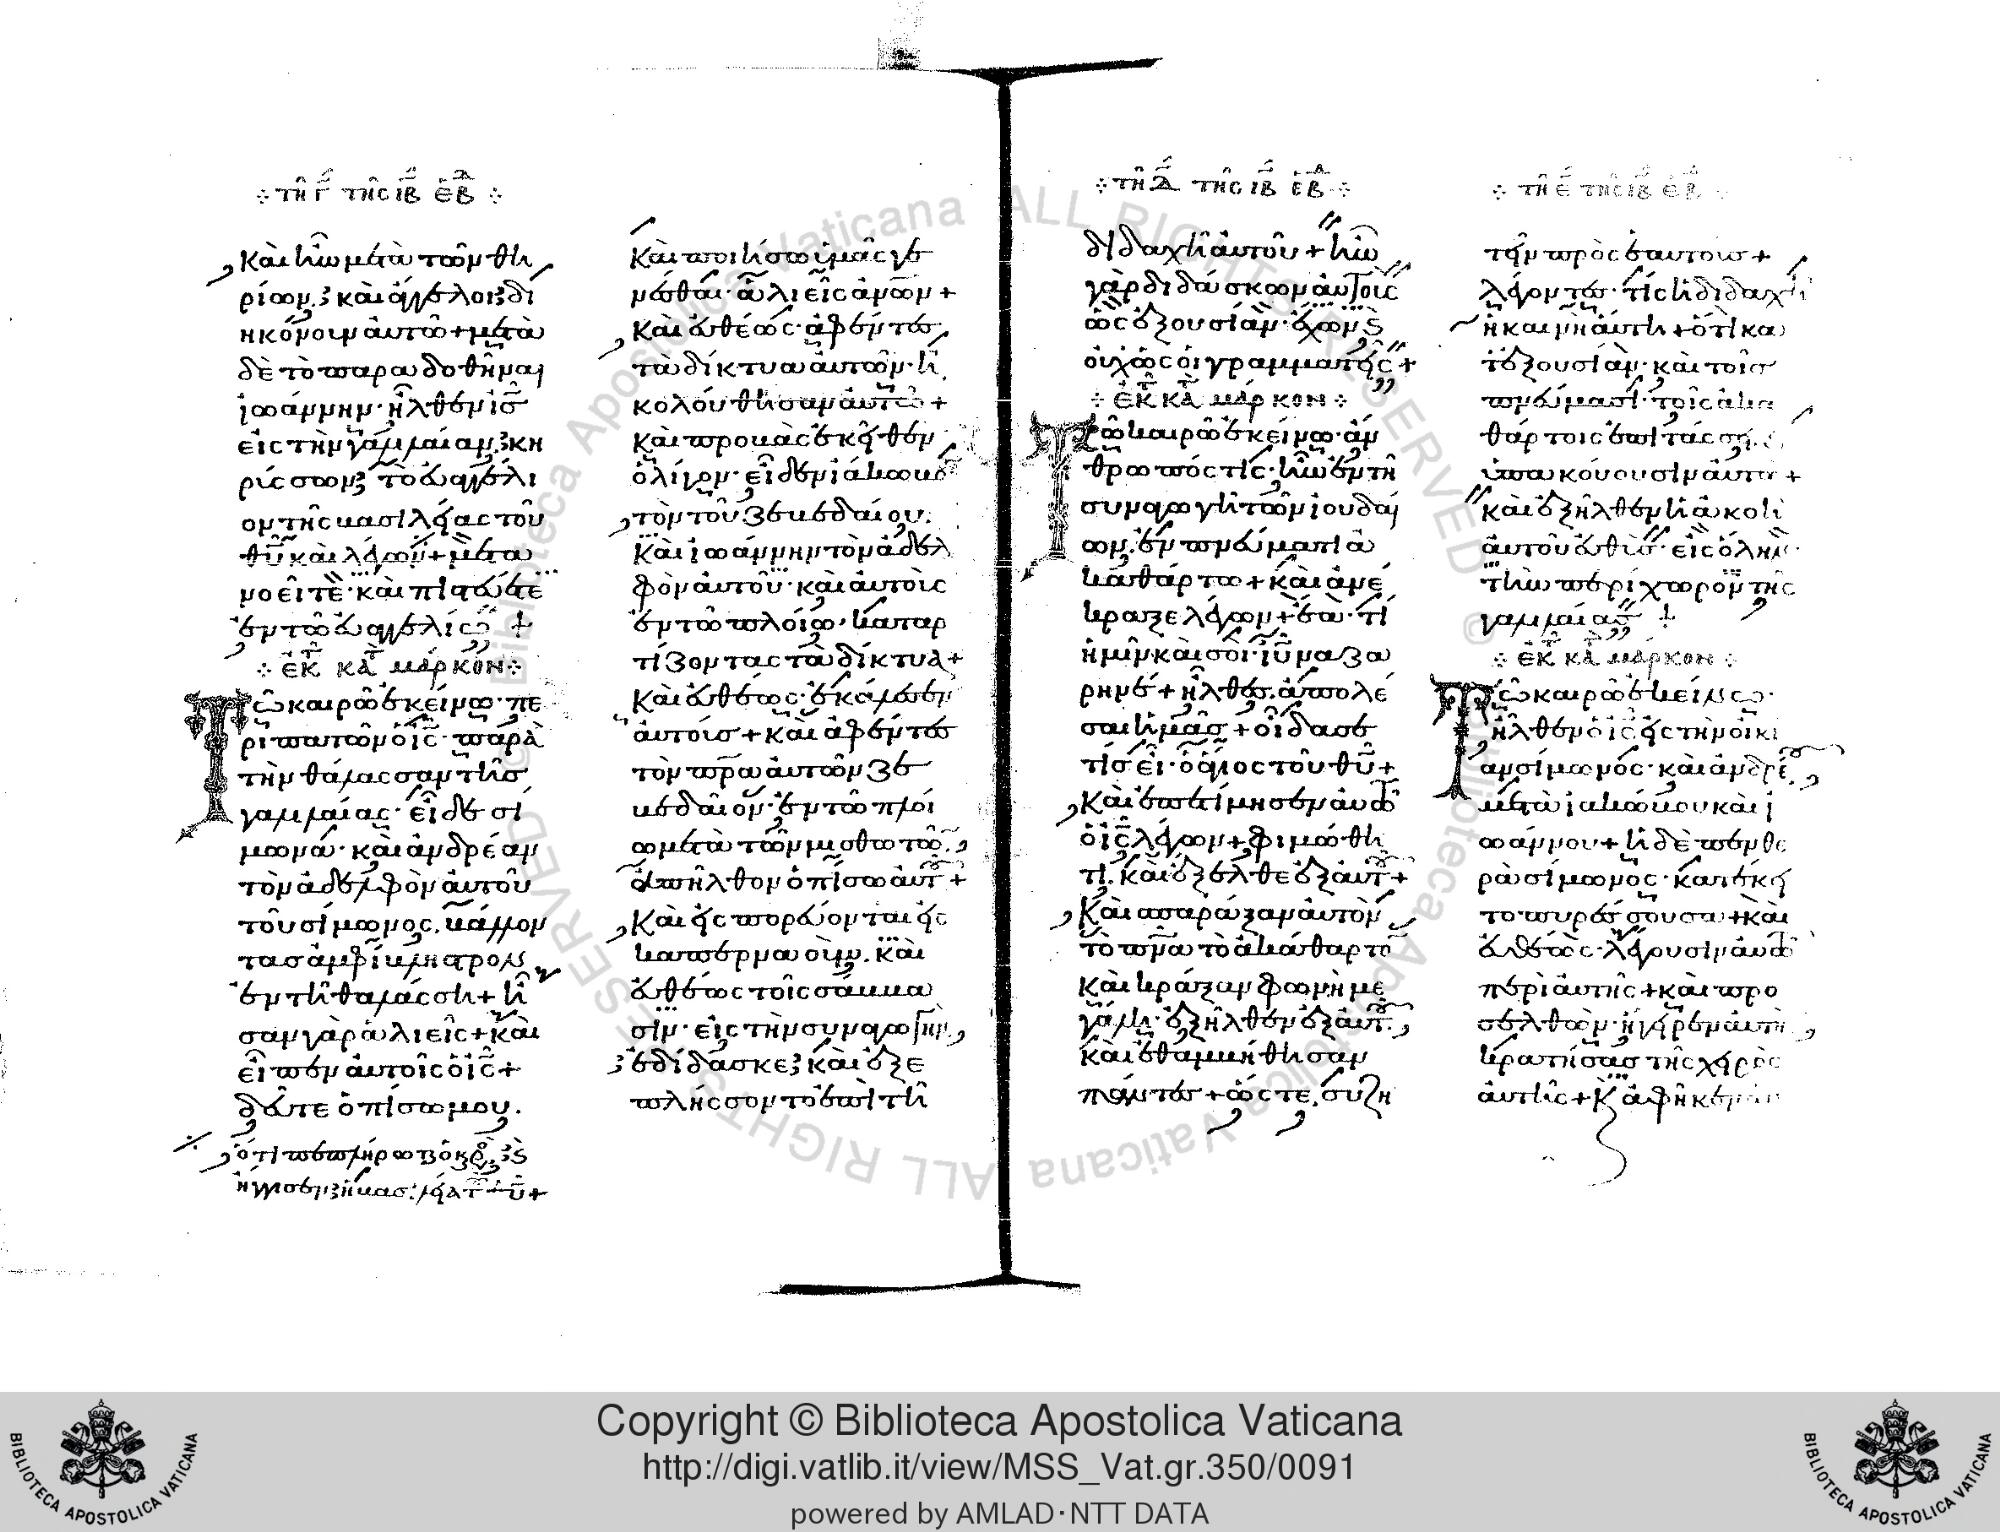 ⁘ τῆ Γ τῆς ιβ ἑβδ ⁘
καὶ ἦν μετὰ τῶν θη
ρίων· καὶ ἄγγελοι δι
ηκόνουν αὐτῶ + μετὰ
δὲ τὸ παραδοθῆναι
ἰωάννην· ἦλθεν ὁ ις
εἰς τὴν γαλιλαίαν· κη
ρύσσων τὸ εὐαγγέλι
ον τῆς βασιλείας τοῦ
θυ καὶ λέγων + μετα
νοεῖτε· καὶ πιστεύετε
ἐν τῶ εὐαγγελίω +
⁘ ἐκ κατ μάρκον ⁘
Τῶ καιρῶ ἐκείνω· πε
ριπατῶν ὁ ις· παρὰ
τὴν θάλασσαν τῆς
γαλιλαίας· εἶδε σί
μωνα· καὶ ἀνδρέαν
τὸν ἀδελφὸν αὐτοῦ
τοῦ σίμωνος. βάλλον
τας ἀμφίβληστρον
ἐν τῆ θαλάσση + ἦ
σαν γὰρ ἁλιεῖς + καὶ
εἶπεν αὐτοῖς ὁ ις +
δεῦτε ὀπίσω μου.
ὅτι πεπλήρωται ὁ καιρὸς
ἤγγικεν
καὶ ποιήσω ὑμᾶς γε
νέσθαι· ἁλιεῖς ἀνων +
καὶ εὐθέως· ἀφέντες
τὰ δίκτυα αὐτῶν· ἠ
κολούθησαν αὐτῶ +
καὶ προβὰς ἐκεῖθεν
ὀλίγον· εἶδεν ἰάκωβον
τὸν τοῦ ζεβεδαίου.
καὶ ἰωάννην τὸν ἀδελ
φὸν αὐτοῦ· καὶ αὐτοὺς
ἐν τῶ πλοίω· καταρ
τίζοντας τὰ δίκτυα +
καὶ εὐθέως· ἐκάλεσεν
αὐτούς + καὶ ἀφέντες
τὸν πρα αὐτῶν ζε
βεδαῖον· ἐν τῶ πλοί
ω μετὰ τῶν μισθωτῶν.
ἀπῆλθον ὀπίσω αὐτοῦ +
καὶ εἰσπορεύονται εἰς
καπερναούμ. καὶ
εὐθέως τοῖς σάββα
σιν· εἰς τὴν συναγωγὴν
ἐδίδασκε καὶ ἐξε
πλήσσοντο ἐπὶ τῆ
⁘ τῆ Δ τῆς ιβ ἑβδ ⁘
διδαχῆ αὐτοῦ + ἦν
γὰρ διδάσκων αὐτοὺς
ὡς ἐξουσίαν· ἔχων· καὶ
οὐχ ὡς οἱ γραμματεῖς +
⁘ ἐκ κατ μάρκον ⁘
Τῶ καιρῶ ἐκείνω· ἄν
θρωπός τις· ἦν ἐν τῆ
συναγωγῆ τῶν ἰουδαί
ων. ἐν πνεύματι ἀ
καθάρτω + καὶ ἀνέ
κραξε λέγων + ἔα· τί
ἡμῖν καὶ σοὶ· ιυ ναζα
ρηνέ + ἦλθες ἀπολέ
σαι ἡμᾶς + οἶδά σε
τίς εἶ· ὁ ἅγιος τοῦ θυ +
καὶ ἐπετίμησεν αὐτῶ
ὁ ις λέγων + φιμώθη
τι. καὶ ἔξελθε ἐξ αὐτοῦ +
καὶ σπαράξαν αὐτὸν
τὸ πνα τὸ ἀκάθαρτον
καὶ κράξαν φωνῆ με
γάλη· ἐξῆλθεν ἐξ αὐτοῦ.
καὶ ἐθαμβήθησαν
πάντες + ὥστε συζη
⁘ τῆ ε τῆς ιβ ἑβδ ⁘
τεῖν πρὸς ἑαυτοὺς +
λέγοντες· τίς ἡ διδαχὴ
ἡ καινὴ αὕτη + ὅτι κα
τ᾽ ἐξουσίαν· καὶ τοῖς
πνεύμασι· τοῖς ἀκα
θάρτοις ἐπιτάσσει·
ὑπακούουσιν αὐτῶ +
καὶ ἐξῆλθεν ἡ ἀκοὴ
αὐτοῦ εὐθὺς· εἰς ὅλην·
τὴν περίχωρον τῆς
γαλιλαίας +
⁘ ἐκ κατ μάρκον ⁘
Τῶ καιρῶ ἐκείνω·
ἦλθεν ὁ ις εἰς τὴν οἰκί
αν σίμωνος· καὶ ἀνδρέου
μετὰ ἰακώβου καὶ ἰ
ωάννου + ἡ δὲ πενθε
ρὰ σίμωνος· κατέκει
το πυρέσσουσα + καὶ
εὐθέως· λέγουσιν αὐτῶ
περὶ αὐτῆς + καὶ προ
σελθὼν· ἤγειρεν αὐτὴν
κρατήσας τῆς χειρὸς
αὐτῆς + καὶ ἀφῆκεν
Copyright © Biblioteca Apostolica Vaticana
http://digi.vatlib.it/view/MSS_Vat.gr.350/0091
powered by AMLAD·NTT DATA
BIBLIOTECA APOSTOLICA VATICANA
BIBLIOTECA APOSTOLICA VATICANA
© Biblioteca Apostolica Vaticana ALL RIGHTS RESERVED © Biblioteca Apostolica Vaticana ALL RIGHTS RESERVED